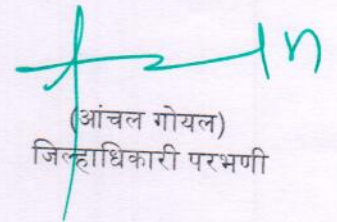 (आंचल गोयल)
जिल्हाधिकारी परभणी